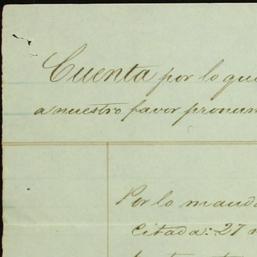 Cuenta por lo que
a nuestro favor pronun
Por lo manda
Citada: 27